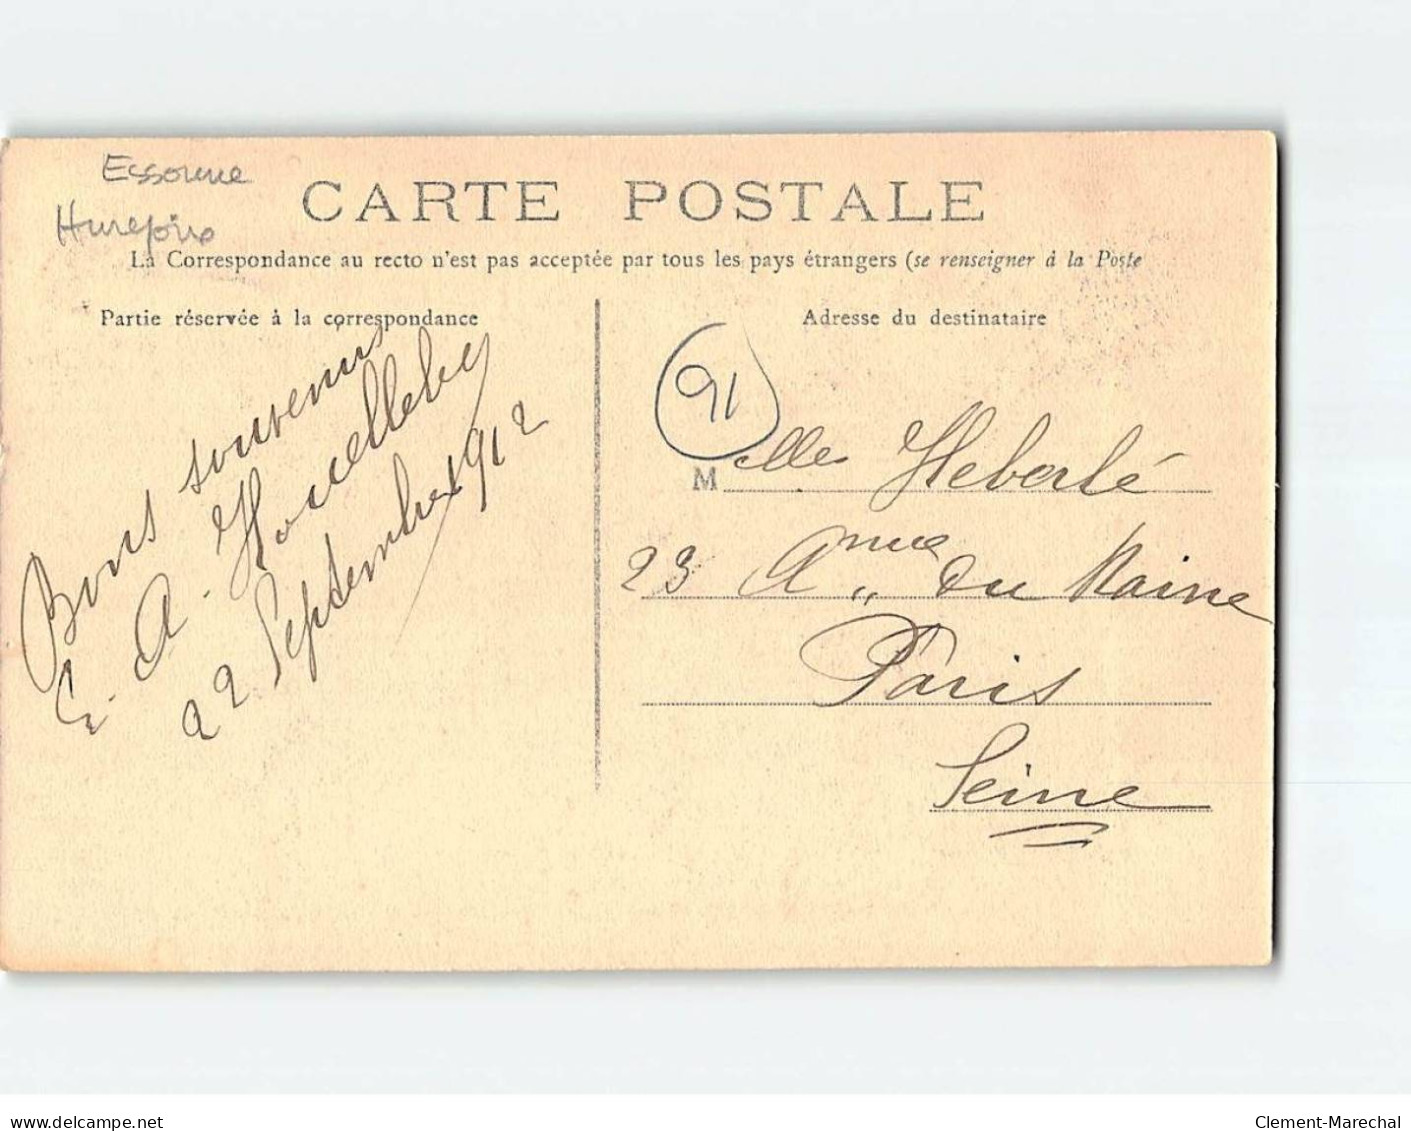 Essonne
Hurepoix
CARTE POSTALE
La Correspondance au recto n'est pas acceptée par tous les pays étrangers (se renseigner à la Poste
Partie réservée à la correspondance
Bons souvenirs
E. A.
22 Septembre 1912
Adresse du destinataire
91
Melles Heberlé
23 Anue du Maine
Paris
Seine
www.delcampe.net
Clement-Marechal